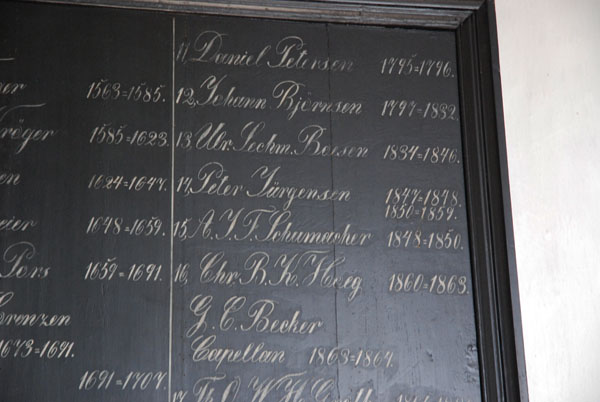 1563=1585.
1585=1623.
1624=1647.
1648=1659.
Pors 1659=1691.
1673=1691.
1691=1707.
11, Daniel Petersen 1795=1796.
12, Johann Björnsen 1797=1832.
13, Ulr. Sechm. Boesen 1834=1846.
14, Peter Jürgensen 1847=1848.
1850=1859.
15, A. J. F. Schumacher 1848=1850.
16, Chr. B. K. Heeg 1860=1863.
G. C. Becker
Capellan 1863=1864.
17,